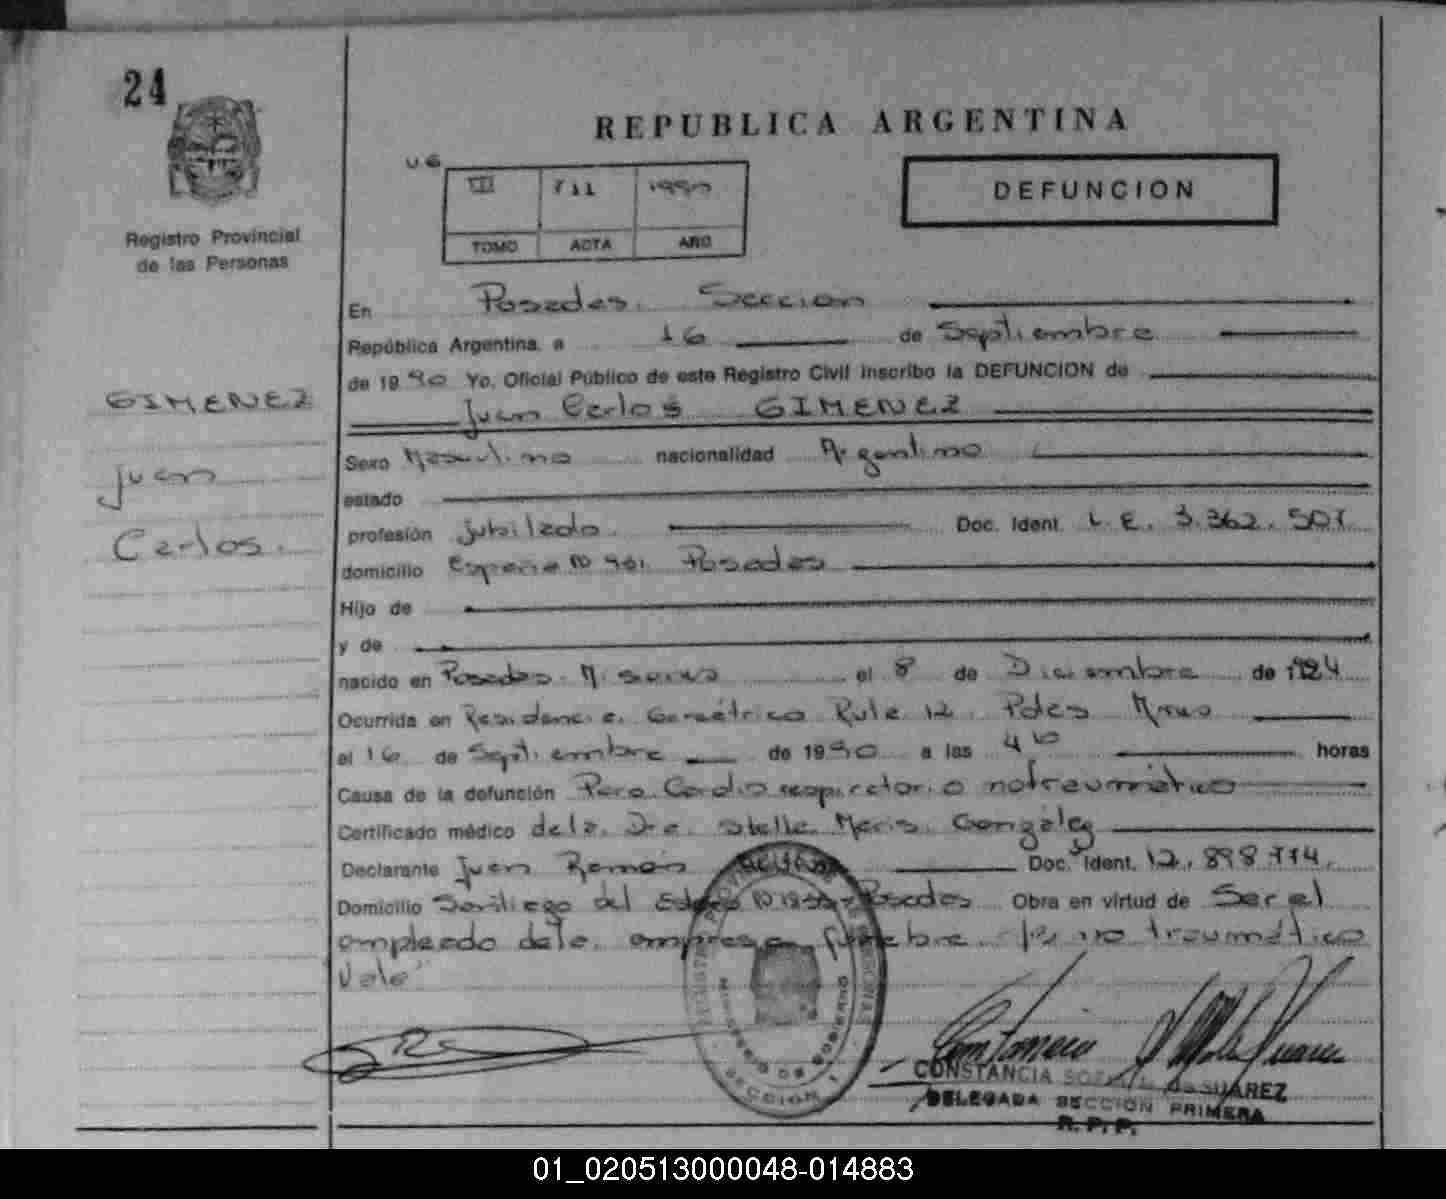 24
REPUBLICA ARGENTINA
III 711 1990
TOMO ACTA AÑO
DEFUNCION
Registro Provincial
de las Personas
GIMENEZ
Juan
Carlos.
En Posadas. Seccion
República Argentina, a 16 de Septiembre
de 1990 Yo, Oficial Público de este Registro Civil inscribo la DEFUNCION de
Juan Carlos GIMENEZ
Sexo Masculino nacionalidad Argentino
estado
profesión jubilado. Doc. Ident. L.E. 3.362.507
domicilio España N 961. Posadas
Hijo de
y de
nacido en Posadas. Misiones el 8 de Diciembre de 1924
Ocurrida en Residencia Geriátrico Ruta 12. Pdas Mnes
el 16 de Septiembre de 1990 a las 4 10 horas
Causa de la defunción Paro Cardio respiratorio no traumático
Certificado médico de la Dra. Stella Maris González
Declarante Juan Ramón Doc. Ident. 12.898.774.
Domicilio Santiago del Estero Posadas Obra en virtud de Ser el
empleado de la empresa fúnebre. no traumático
Vale
REGISTRO PROVINCIAL DE LAS PERSONAS
MINISTERIO DE GOBIERNO
SECCION 1
CONSTANCIA SUAREZ
DELEGADA SECCION PRIMERA
R.P.P.
01_020513000048-014883